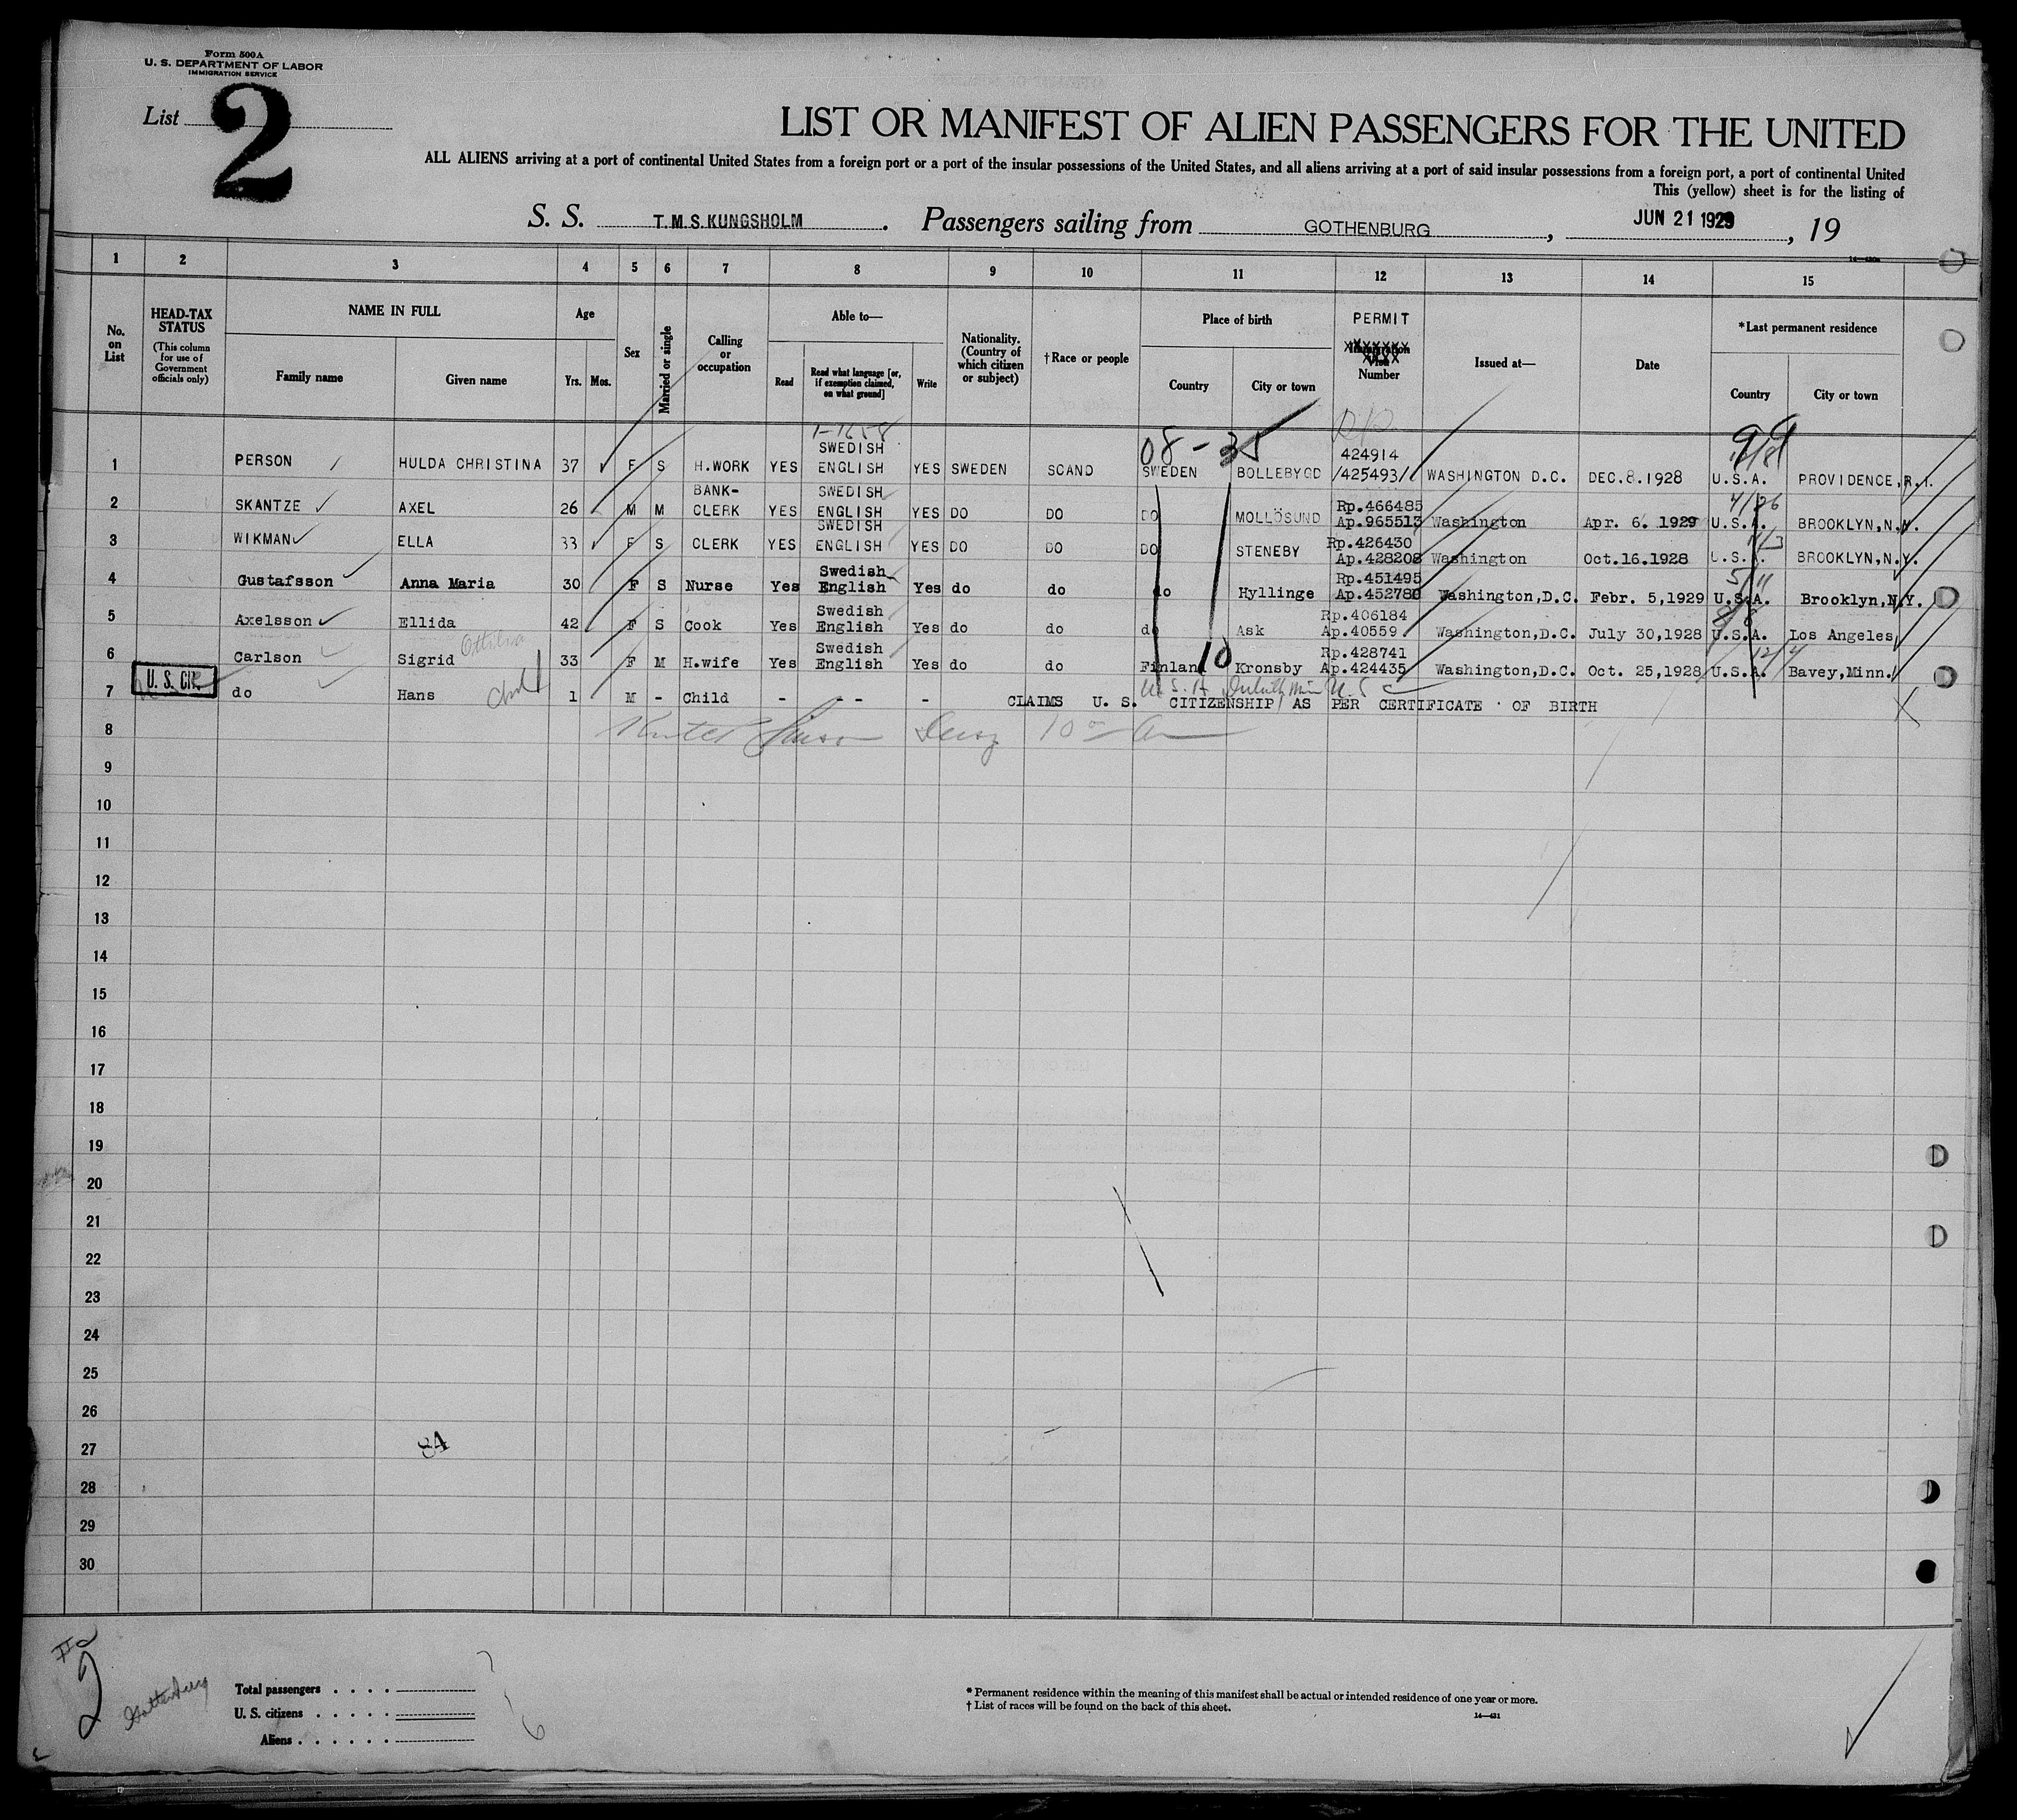 Form 500A
U. S. DEPARTMENT OF LABOR
IMMIGRATION SERVICE
List 2
LIST OR MANIFEST OF ALIEN PASSENGERS FOR THE UNITED
ALL ALIENS arriving at a port of continental United States from a foreign port or a port of the insular possessions of the United States, and all aliens arriving at a port of said insular possessions from a foreign port, a port of continental United
This (yellow) sheet is for the listing of
S. S. T.M.S.KUNGSHOLM. Passengers sailing from GOTHENBURG, JUN 21 1929, 19
1 2 3 4 5 6 7 8 9 10 11 12 13 14 15
No. on List
HEAD-TAX STATUS (This column for use of Government officials only)
NAME IN FULL
Family name
Given name
Age
Yrs. Mos.
Sex
Married or single
Calling or occupation
Able to—
Read
Read what language [or, if exemption claimed, on what ground]
Write
Nationality. (Country of which citizen or subject)
† Race or people
Place of birth
Country
City or town
PERMIT
Number
Issued at—
Date
*Last permanent residence
Country
City or town
08-35
99
1 PERSON HULDA CHRISTINA 37 F S H.WORK YES SWEDISH ENGLISH YES SWEDEN SCAND SWEDEN BOLLEBYGD 424914 /425493/ WASHINGTON D.C. DEC.8.1928 U.S.A. PROVIDENCE,R.I.
2 SKANTZE AXEL 26 M M BANK-CLERK YES SWEDISH ENGLISH YES DO DO DO MOLLÖSUND Rp.466485 Ap.965513 Washington Apr. 6. 1929 U.S.A. BROOKLYN,N.Y.
3 WIKMAN ELLA 33 F S CLERK YES SWEDISH ENGLISH YES DO DO DO STENEBY Rp.426430 Ap.428208 Washington Oct.16.1928 U.S.A. BROOKLYN,N.Y.
4 Gustafsson Anna Maria 30 F S Nurse Yes Swedish English Yes do do do Hyllinge Rp.451495 Ap.452780 Washington,D.C. Febr. 5,1929 U.S.A. Brooklyn,N.Y.
5 Axelsson Ellida 42 F S Cook Yes Swedish English Yes do do do Ask Rp.406184 Ap.40559 Washington,D.C. July 30,1928 U.S.A. Los Angeles,
6 Carlson Sigrid 33 F M H.wife Yes Swedish English Yes do do Finland 10 Kronsby Rp.428741 Ap.424435 Washington,D.C. Oct. 25,1928 U.S.A. Bavey,Minn.
U. S. CIT.
7 do Hans 1 M - Child - - - - CLAIMS U. S. CITIZENSHIP AS PER CERTIFICATE OF BIRTH
8
9
10
11
12
13
14
15
16
17
18
19
20
21
22
23
24
25
26
27
28
29
30
84
2
Gothenburg
Total passengers
U. S. citizens
Aliens
7
1
6
* Permanent residence within the meaning of this manifest shall be actual or intended residence of one year or more.
† List of races will be found on the back of this sheet.
14—431